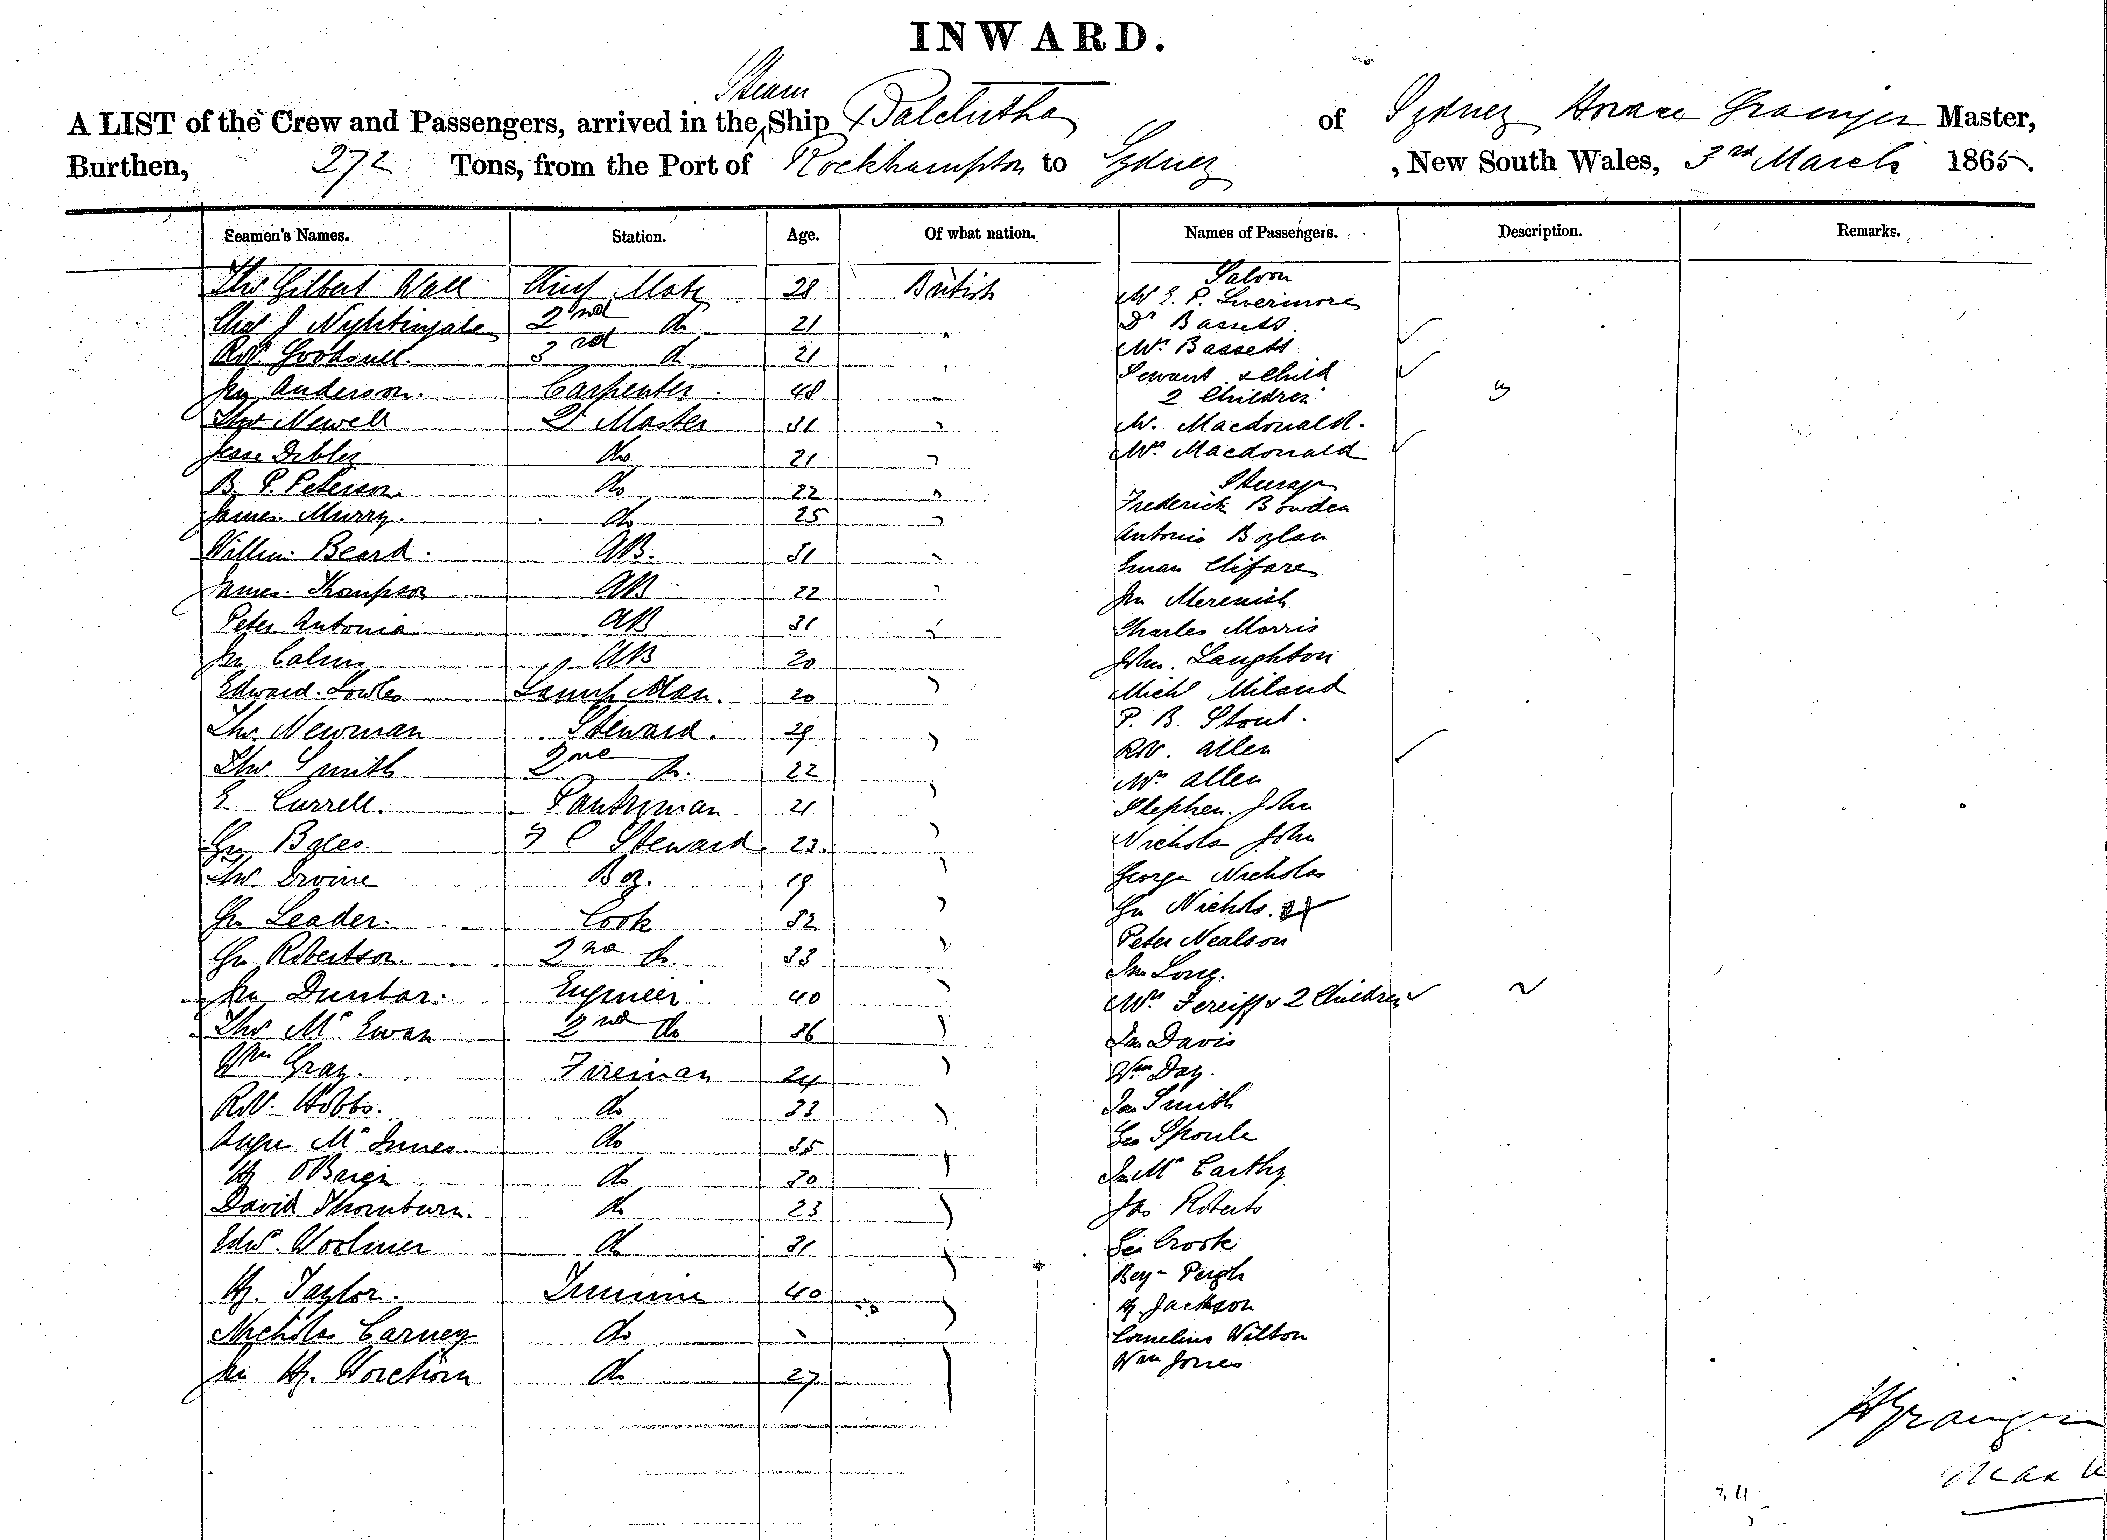 INWARD.
Steam
A LIST of the Crew and Passengers, arrived in the Ship Balclutha of Sydney Horace Grainger Master,
Burthen, 272 Tons, from the Port of Rockhampton to Sydney , New South Wales, 3rd March 1865.
Seamen's Names. Station. Age. Of what nation. Names of Passengers. Description. Remarks.
Saloon
Thos Gilbert Wall Chief Mate 28 British
Mr E. P. Livermore
Chas J Nightingale 2nd do 21
Dr Bassett
Robt 3rd do 21
Mrs Bassett
Servant & Child
Jno Anderson. Carpenter 48
2 Children
Thos Newell Qr Master 31 Mr. Macdonald.
Jesse Dibley do 21 Mrs Macdonald
Steerage
B. P. Peterson. do 22
Frederick Bowden
James Murry. do 25
Antonio
William Beard. AB. 31
James Thompson AB 22 Jno
Peter Antonio AB 31 Charles Morris
Jno AB 20 John. Laughton
Edward. Lamp Man. 20 Michl
P. B. Stout.
Thos Newman Steward. 29
Robt. Allen
Thos Smith 2nd do. 22
Mrs Allen
E Currell. Pantryman 21 Stephen. John
Byles F C Steward 23. Nichols John
Thos Irvine Boy. 19 George Nicholas
Leader. Cook 32 Nichols.
Robertson. 2nd do 33 Peter Nealson
Long.
Jno Dunbar. Engineer 40 Mrs & 2 Children
Thos McEwan 2nd do 36 Davis
Wm Gray. Fireman 24 Wm Day.
Robt. Hobbs. do 33 Smith
Angus McInnes do 35 Geo
Hy O'Brien do 30 McCarthy
David Thornburn. do 23 Jas Roberts
Edwd. Woolmer do 31 Geo Crook
Benj
Hy. Taylor. Trimmer 40 Hy Jackson
Nicholas Carney do Cornelius Wilton
Jno Hy. do 27 Wm Jones
H Grainger
Master